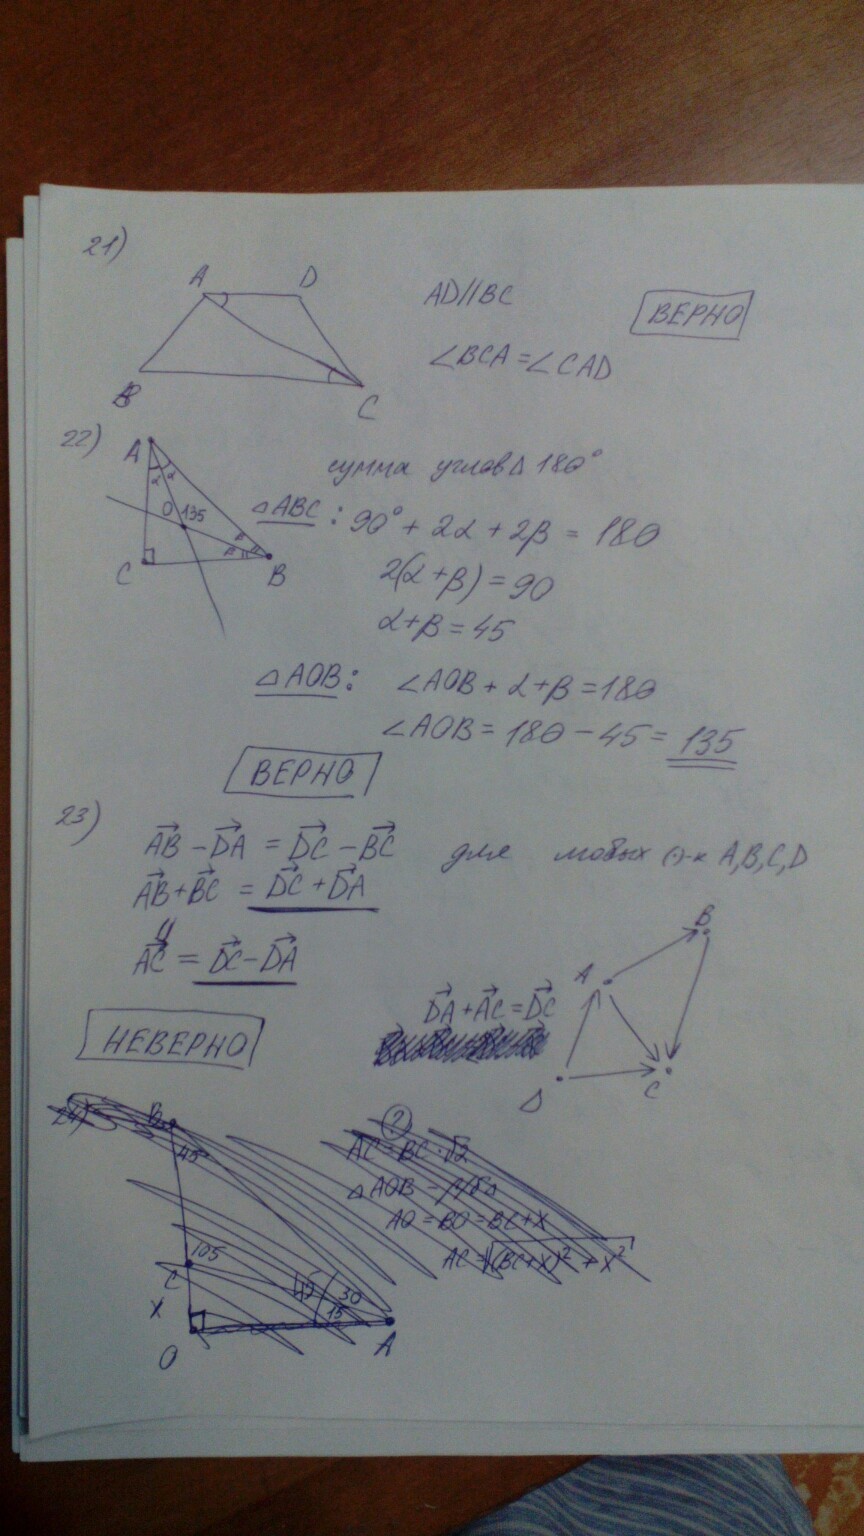 21)
A D
B C
AD//BC
∠BCA = ∠CAD
ВЕРНО
22)
A
α α
O 135
β
β
C B
сумма углов Δ 180°
ΔABC : 90° + 2α + 2β = 180
2(α + β) = 90
α + β = 45
ΔAOB : ∠AOB + α + β = 180
∠AOB = 180 - 45 = 135
ВЕРНО
23)
AB - DA = DC - BC для любых (·)-к A,B,C,D
AB + BC = DC + DA
AC = DC - DA
НЕВЕРНО
DA + AC = DC
B
A
D C
24)
B
45
105
C
X
O
45 30
15
A
?
AC = BC · √2
ΔAOB - р/бΔ
AO = BO = BC + X
AC = √(BC+X)² + X²